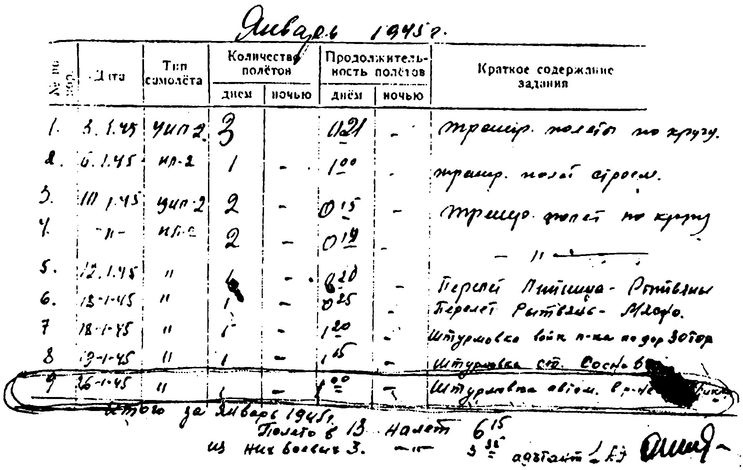 Январь 1945 г.
№ по пор. Дата Тип самолёта Количество полётов днем ночью Продолжительность полётов днём ночью Краткое содержание задания
1. 3.1.45 уил-2 3 0 21 - тренир. полеты по кругу.
2. 6.1.45 ил-2 1 - 1 00 - тренир. полет строем.
3. 10.1.45 уил-2 2 - 0 15 - тренир. полет по кругу
4. -"- ил-2 2 - 0 14 - - " -
5. 12.1.45 " 1 - 0 20 - Перелет - Рытвяны
6. 13-1-45 " 1 - 0 25 - Перелет Рытвяны -
7 18-1-45 " 1 - 1 20 - Штурмовка войск п-ка по дор
8 19-1-45 " 1 - 1 15 - Штурмовка ст.
9 26-1-45 " 1 - 1 00 - Штурмовка автом. в р-не
Итого за Январь 1945 г.
Полетов 13 налет 6 15
из них боевых 3. -"- 3 35 адъютант АЭ